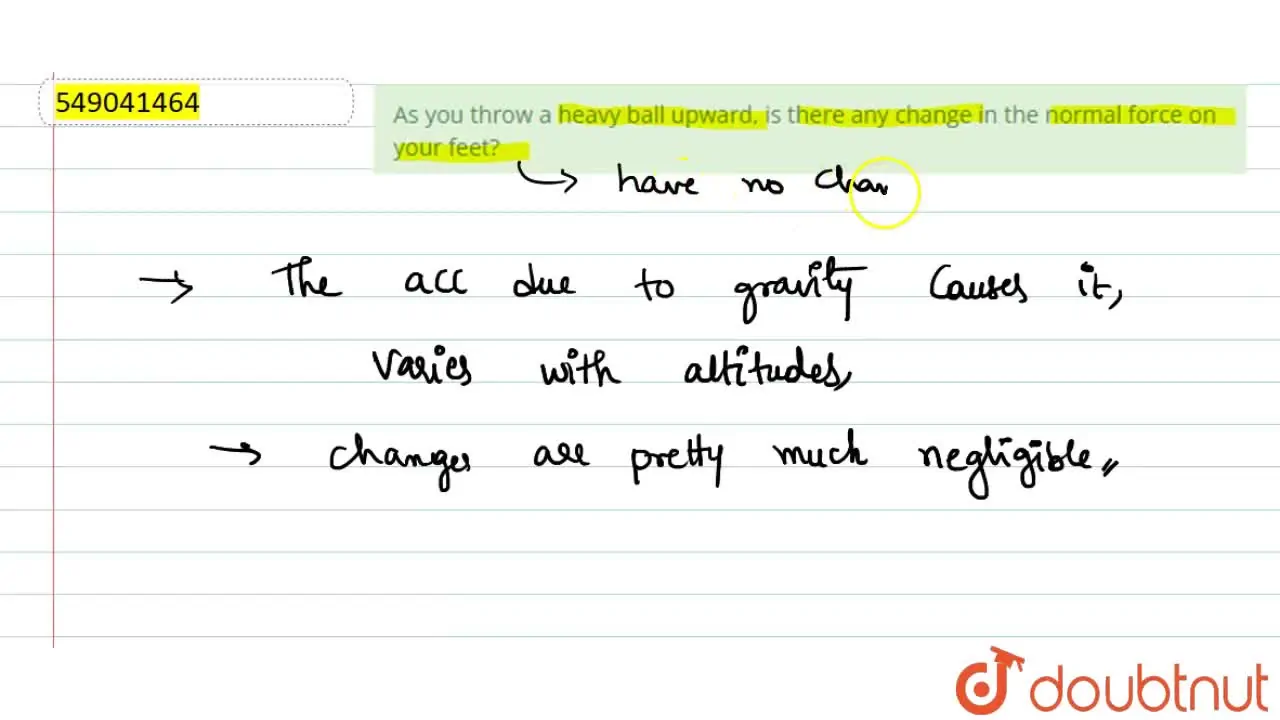 549041464
As you throw a heavy ball upward, is there any change in the normal force on
your feet?
→ have no chan
→ The acc due to gravity causes it,
varies with altitudes,
→ changes are pretty much negligible,,
doubtnut